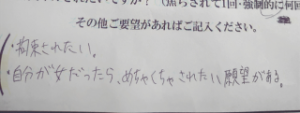 すか？（焦らされて1回・強制的に何回
その他ご要望があればご記入ください。
・拘束されたい。
・自分が女だったら、めちゃくちゃされたい願望がある。